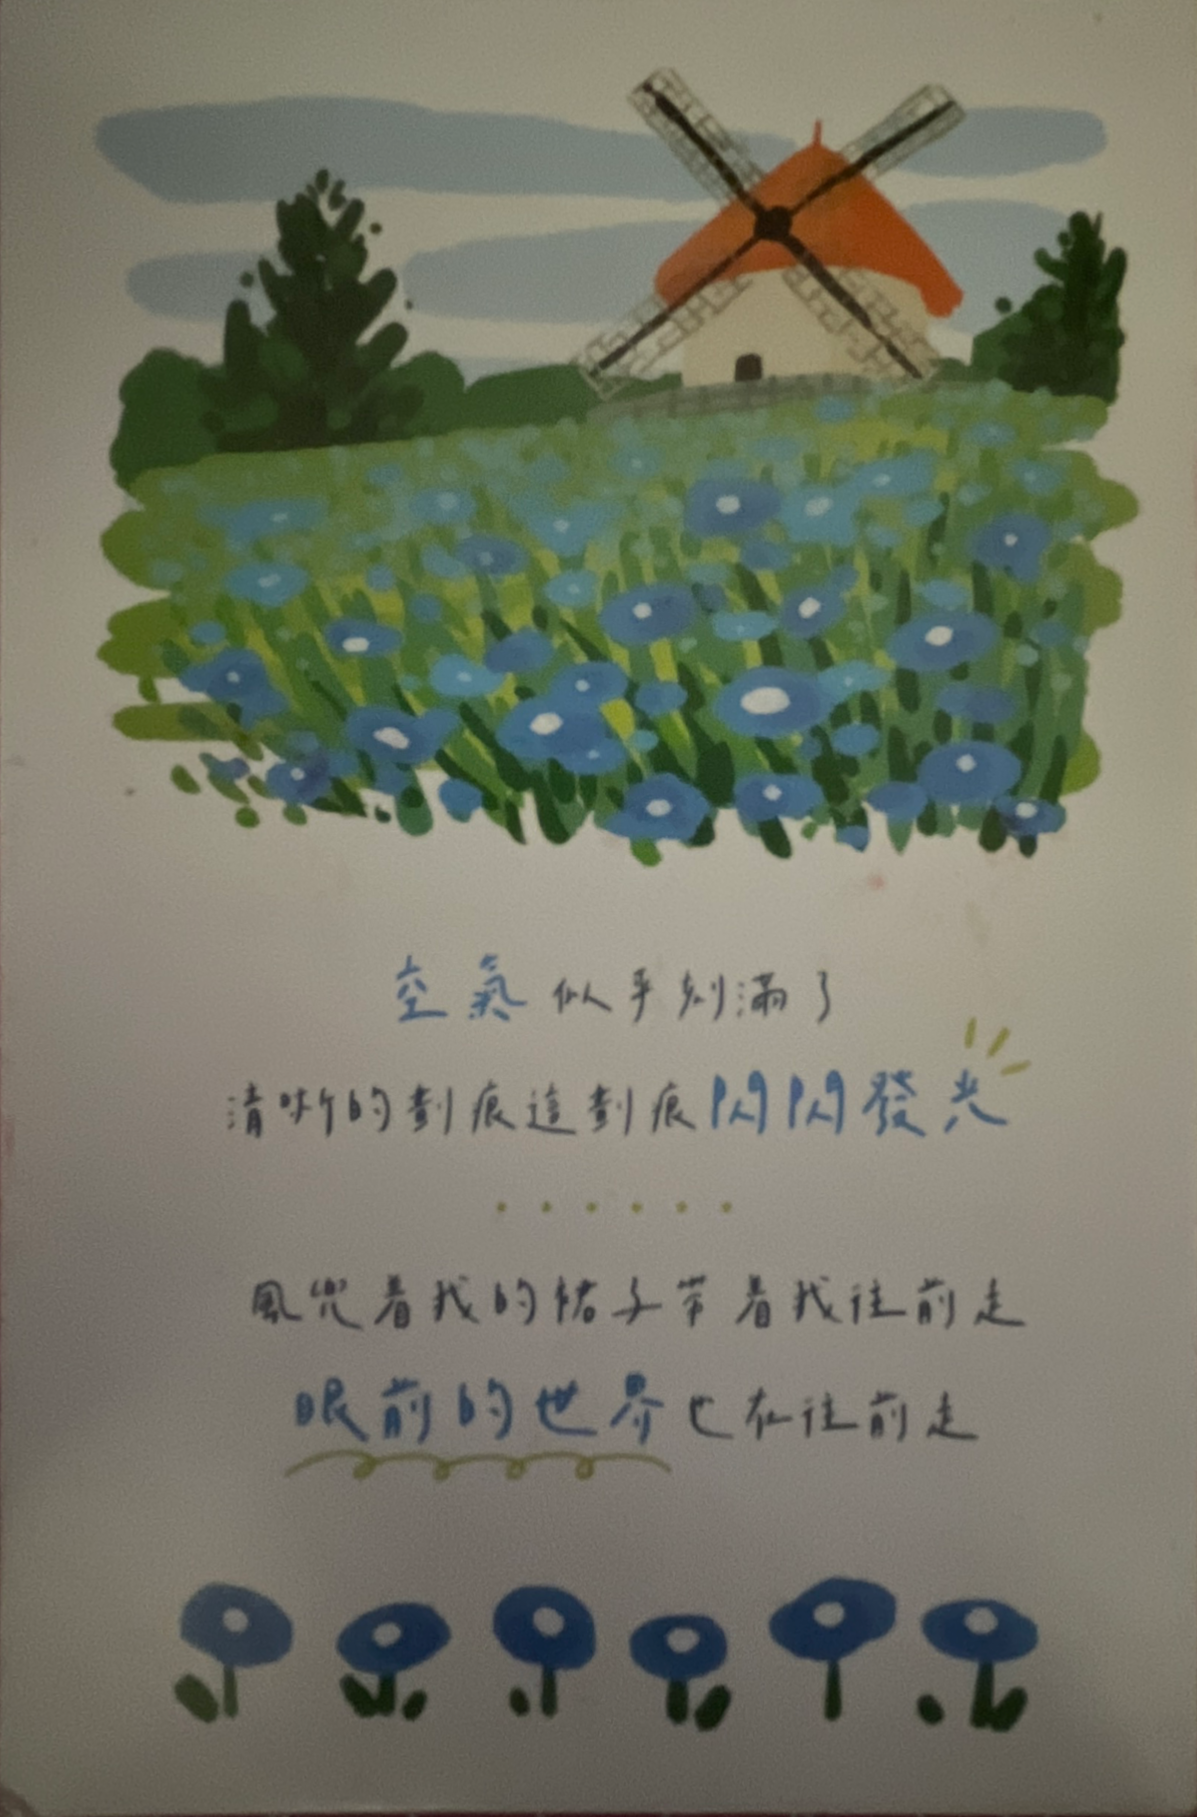 空氣似乎刻滿了
清晰的劃痕這劃痕閃閃發光
......
風兜着我的裙子带着我往前走
眼前的世界也在往前走